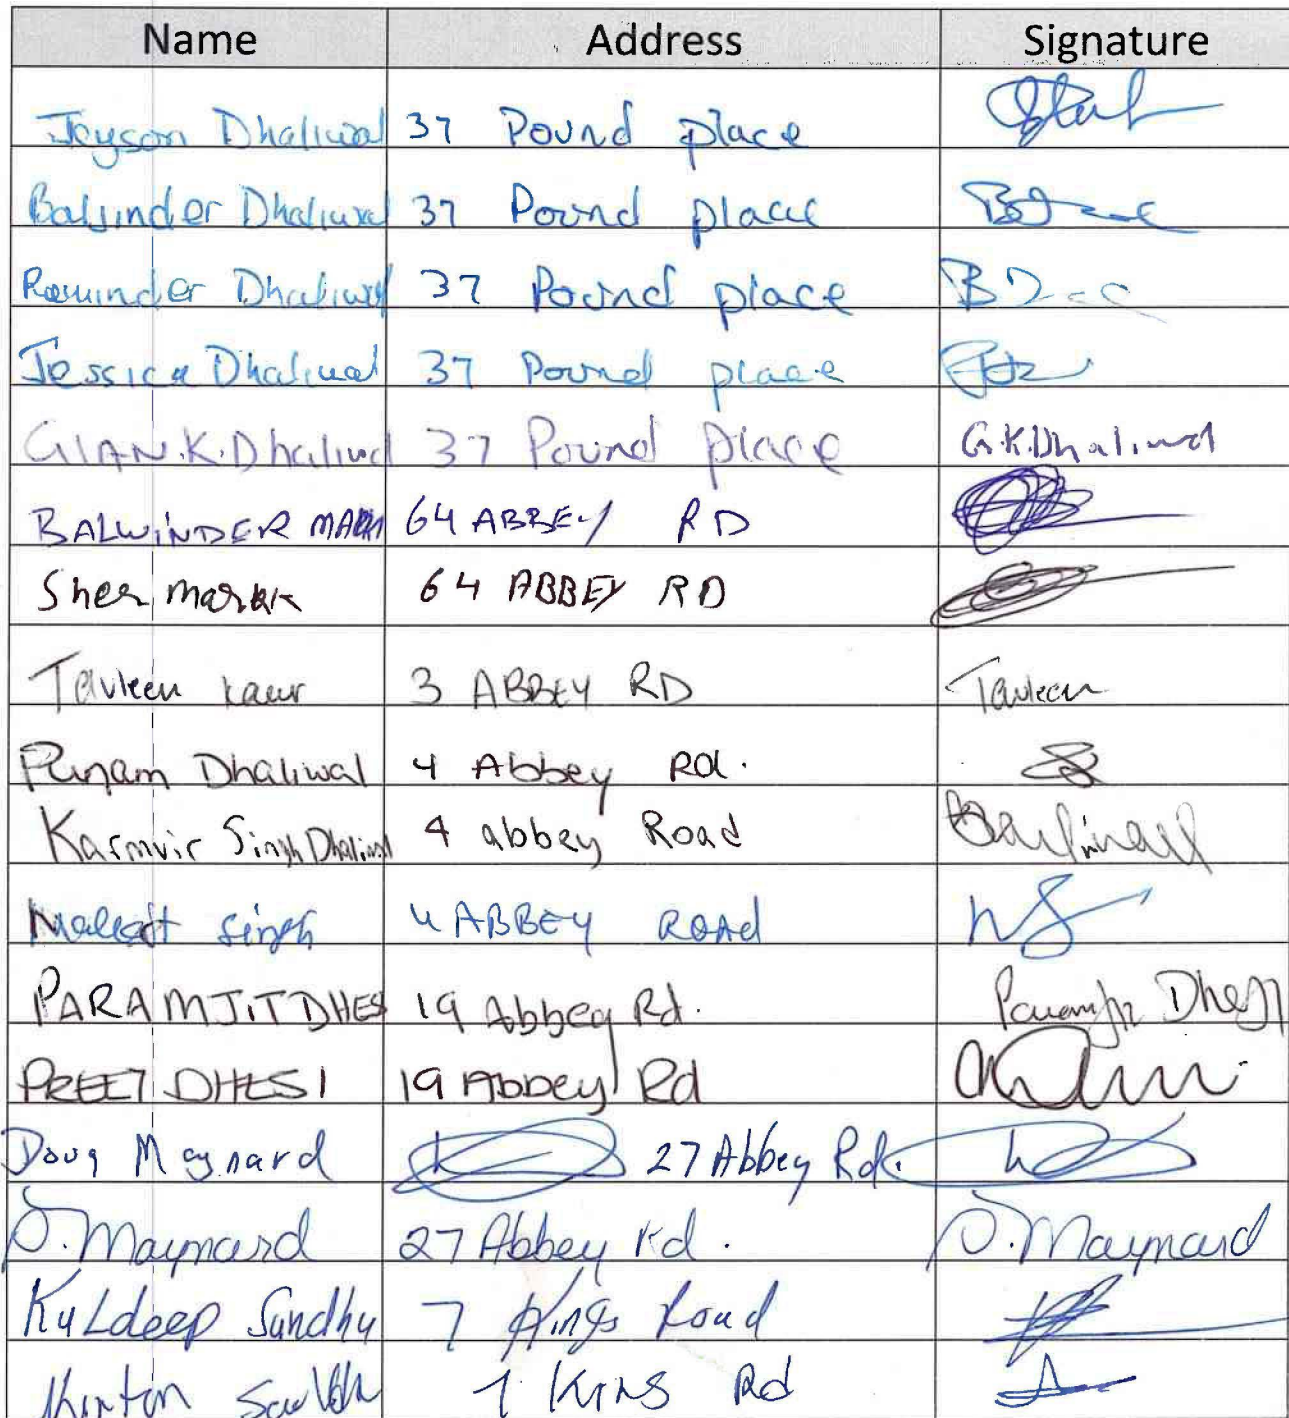 Name Address Signature
Jeyson Dhaliwal 37 Pound place
Baljinder Dhaliwal 37 Pound place
Raminder Dhaliwal 37 Pound place
Jessica Dhaliwal 37 Pound place
GIAN.K.Dhaliwal 37 Pound place G.K.Dhaliwal
BALWINDER 64 ABBEY RD
Sher 64 ABBEY RD
Tavleen kaur 3 ABBEY RD Tavleen
Punam Dhaliwal 4 Abbey Rd.
Karmvir Singh Dhaliwal 4 abbey Road
Singh 4 ABBEY ROAD
PARAMJIT DHESI 19 Abbey Rd. Paramjit Dhesi
PREET DHESI 19 Abbey Rd
Doug Maynard 27 Abbey Rd.
D. Maynard 27 Abbey rd. D. Maynard
KuLdeep Sandhu 7 Kings Road
7 Kings Rd